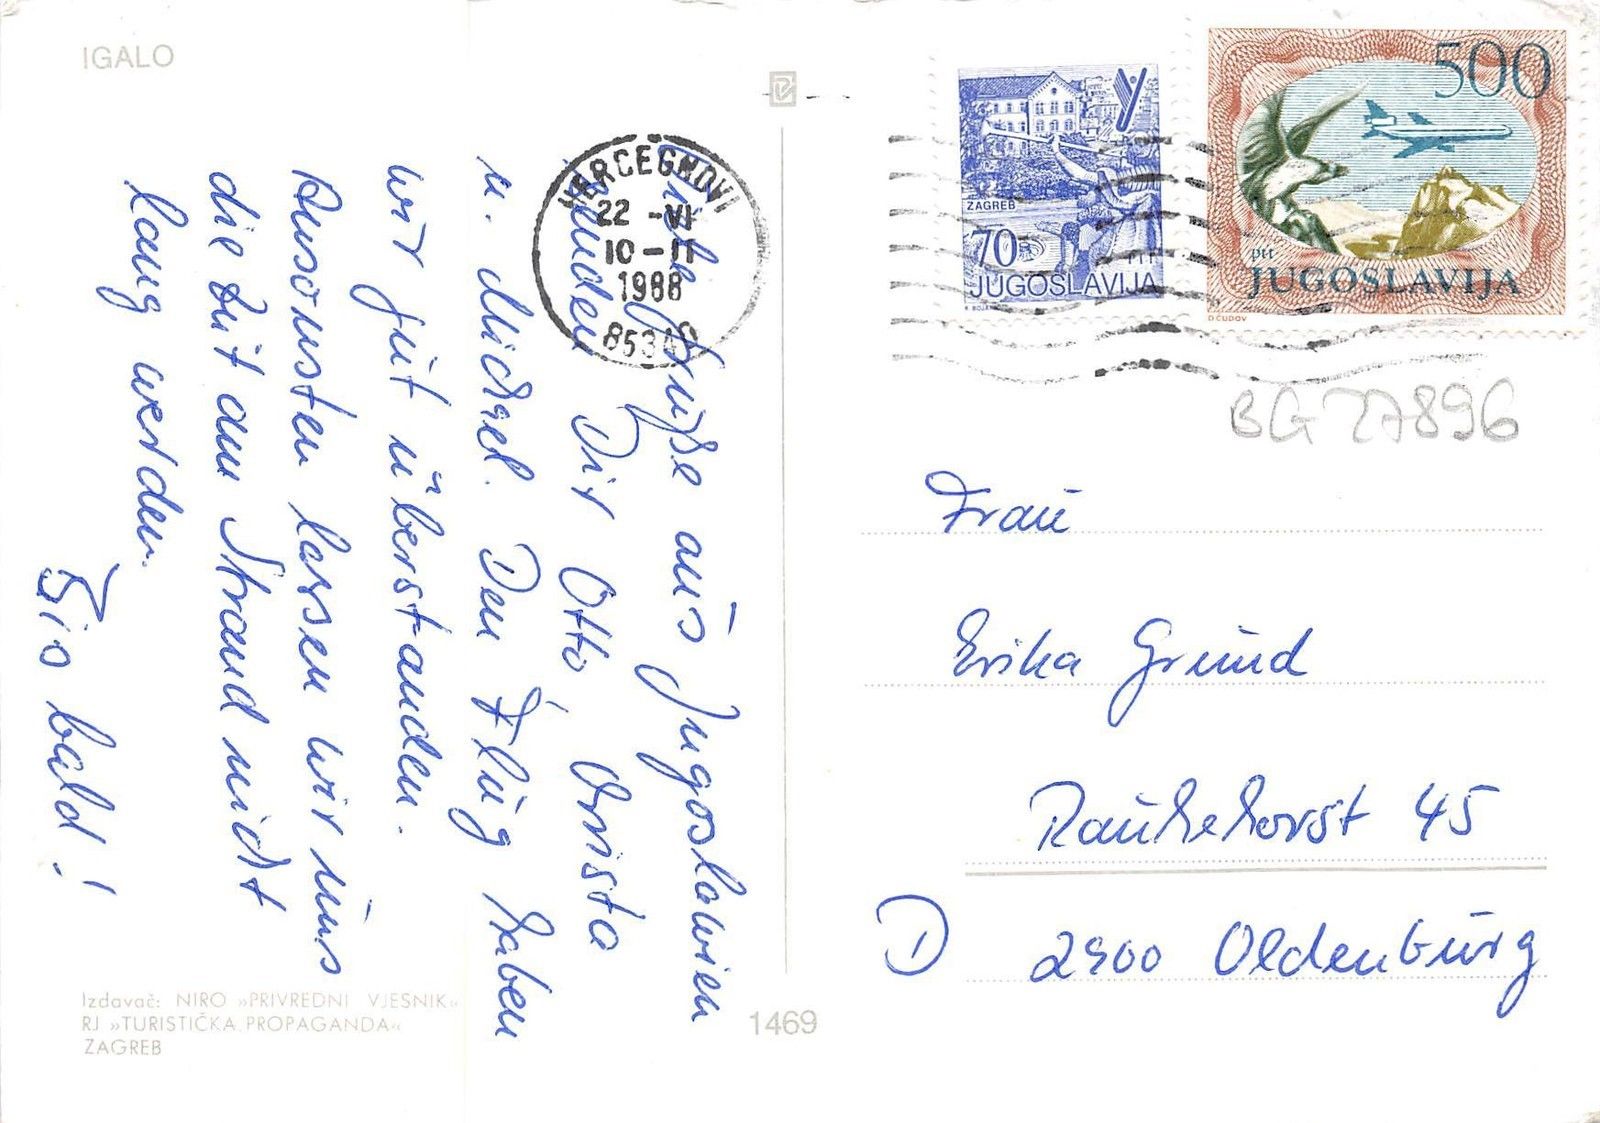 IGALO
Viele Grüße aus Jugoslawien
senden Dir Otto, Christa
u. Michael. Den Flug haben
wir gut überstanden.
Ansonsten lassen wir uns
die Zeit am Strand nicht
lang werden.
Bis bald!
HERCEGNOVI
22 -VI
10-11
1988
8534
ZAGREB
70
PTT
JUGOSLAVIJA
500
ptt
JUGOSLAVIJA
D ČUDOV
BG 27896
Frau
Erika Grund
Rauhehorst 45
D 2900 Oldenburg
Izdavač: NIRO »PRIVREDNI VJESNIK«
RJ »TURISTIČKA PROPAGANDA«
ZAGREB
1469